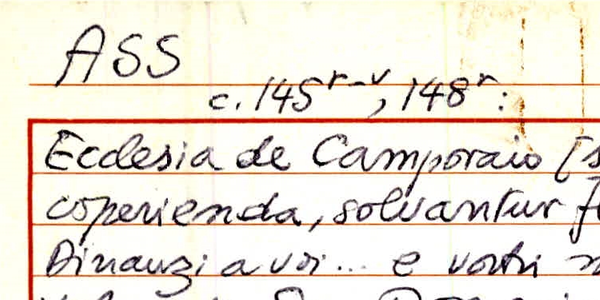 ASS
c. 145r-v, 148r:
Ecclesia de Camporaio [s
coperienda, solvantur f
Dinanzi a voi... e vostri